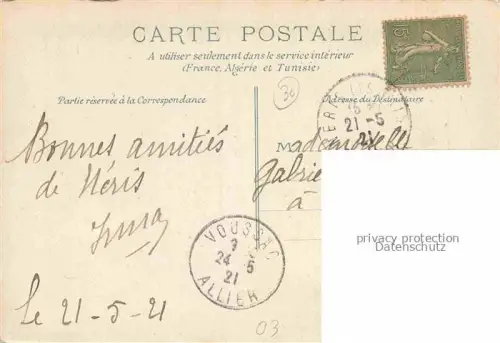 CARTE POSTALE
A utiliser seulement dans le service intérieur
(France, Algérie et Tunisie)
Partie réservée à la Correspondance
Adresse du Destinataire
15
21-5
21
Mademoiselle
Bonnes amitiés
de Néris
Irma
Le 21-5-21
à
VOUSSAC
24 5
21
ALLIER
03
privacy protection
Datenschutz